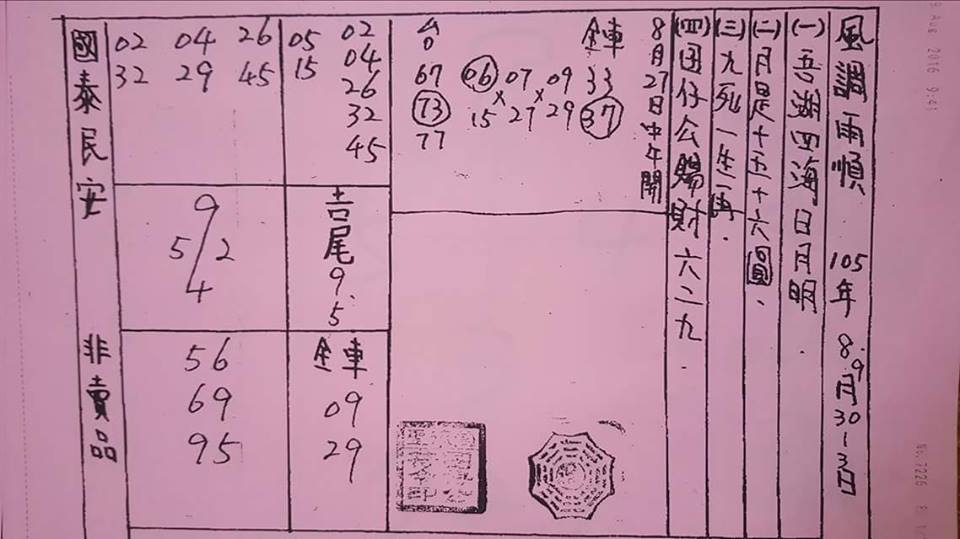 風調雨順 105年 8.9月30-3日
(一)吾湖四海日月明.
(二)月是十五十六圓.
(三)九死一生一再.
(四)囝仔公賜財六二九.
8月27日中午開
全車 33 37
09 29
07 27
06 15
台 67 73 77
02 04 26 32 45
05 15
02 04 26
32 29 45
吉尾 9.5
9 5/2 4
全車 09 29
56 69 95
國泰民安 非賣品
9 Aug 2016 9:41